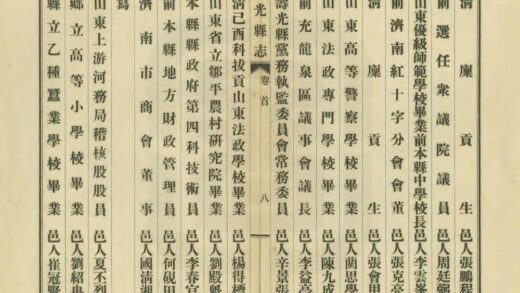 清廩貢生 邑人張鵬程
前選任衆議院議員 邑人周廷
山東優級師範學校畢業前本縣中學校長 邑人李雲峯
前濟南紅十字分會會董 邑人張克亮
清廩貢生 邑人張會
山東高等警察學校畢業 邑人蘭思學
山東法政專門學校畢業 邑人陳九成
前充龍泉區議事會議長 邑人李益高
壽光縣黨務執監委員會常務委員 邑人辛景張
光縣志 卷首 八
清己酉科拔貢山東法政學校畢業 邑人楊得標
山東省立鄒平農村研究院畢業 邑人劉殿
本縣縣政府第四科技術員 邑人李春官
前本縣地方財政管理員 邑人何硯田
濟南市商會董事 邑人國清湖
寫
山東上游河務局稽核股股員 邑人夏丕烈
鄉立高等小學校畢業 邑人劉紹冉
縣立乙種蠶業學校畢業 邑人崔冠